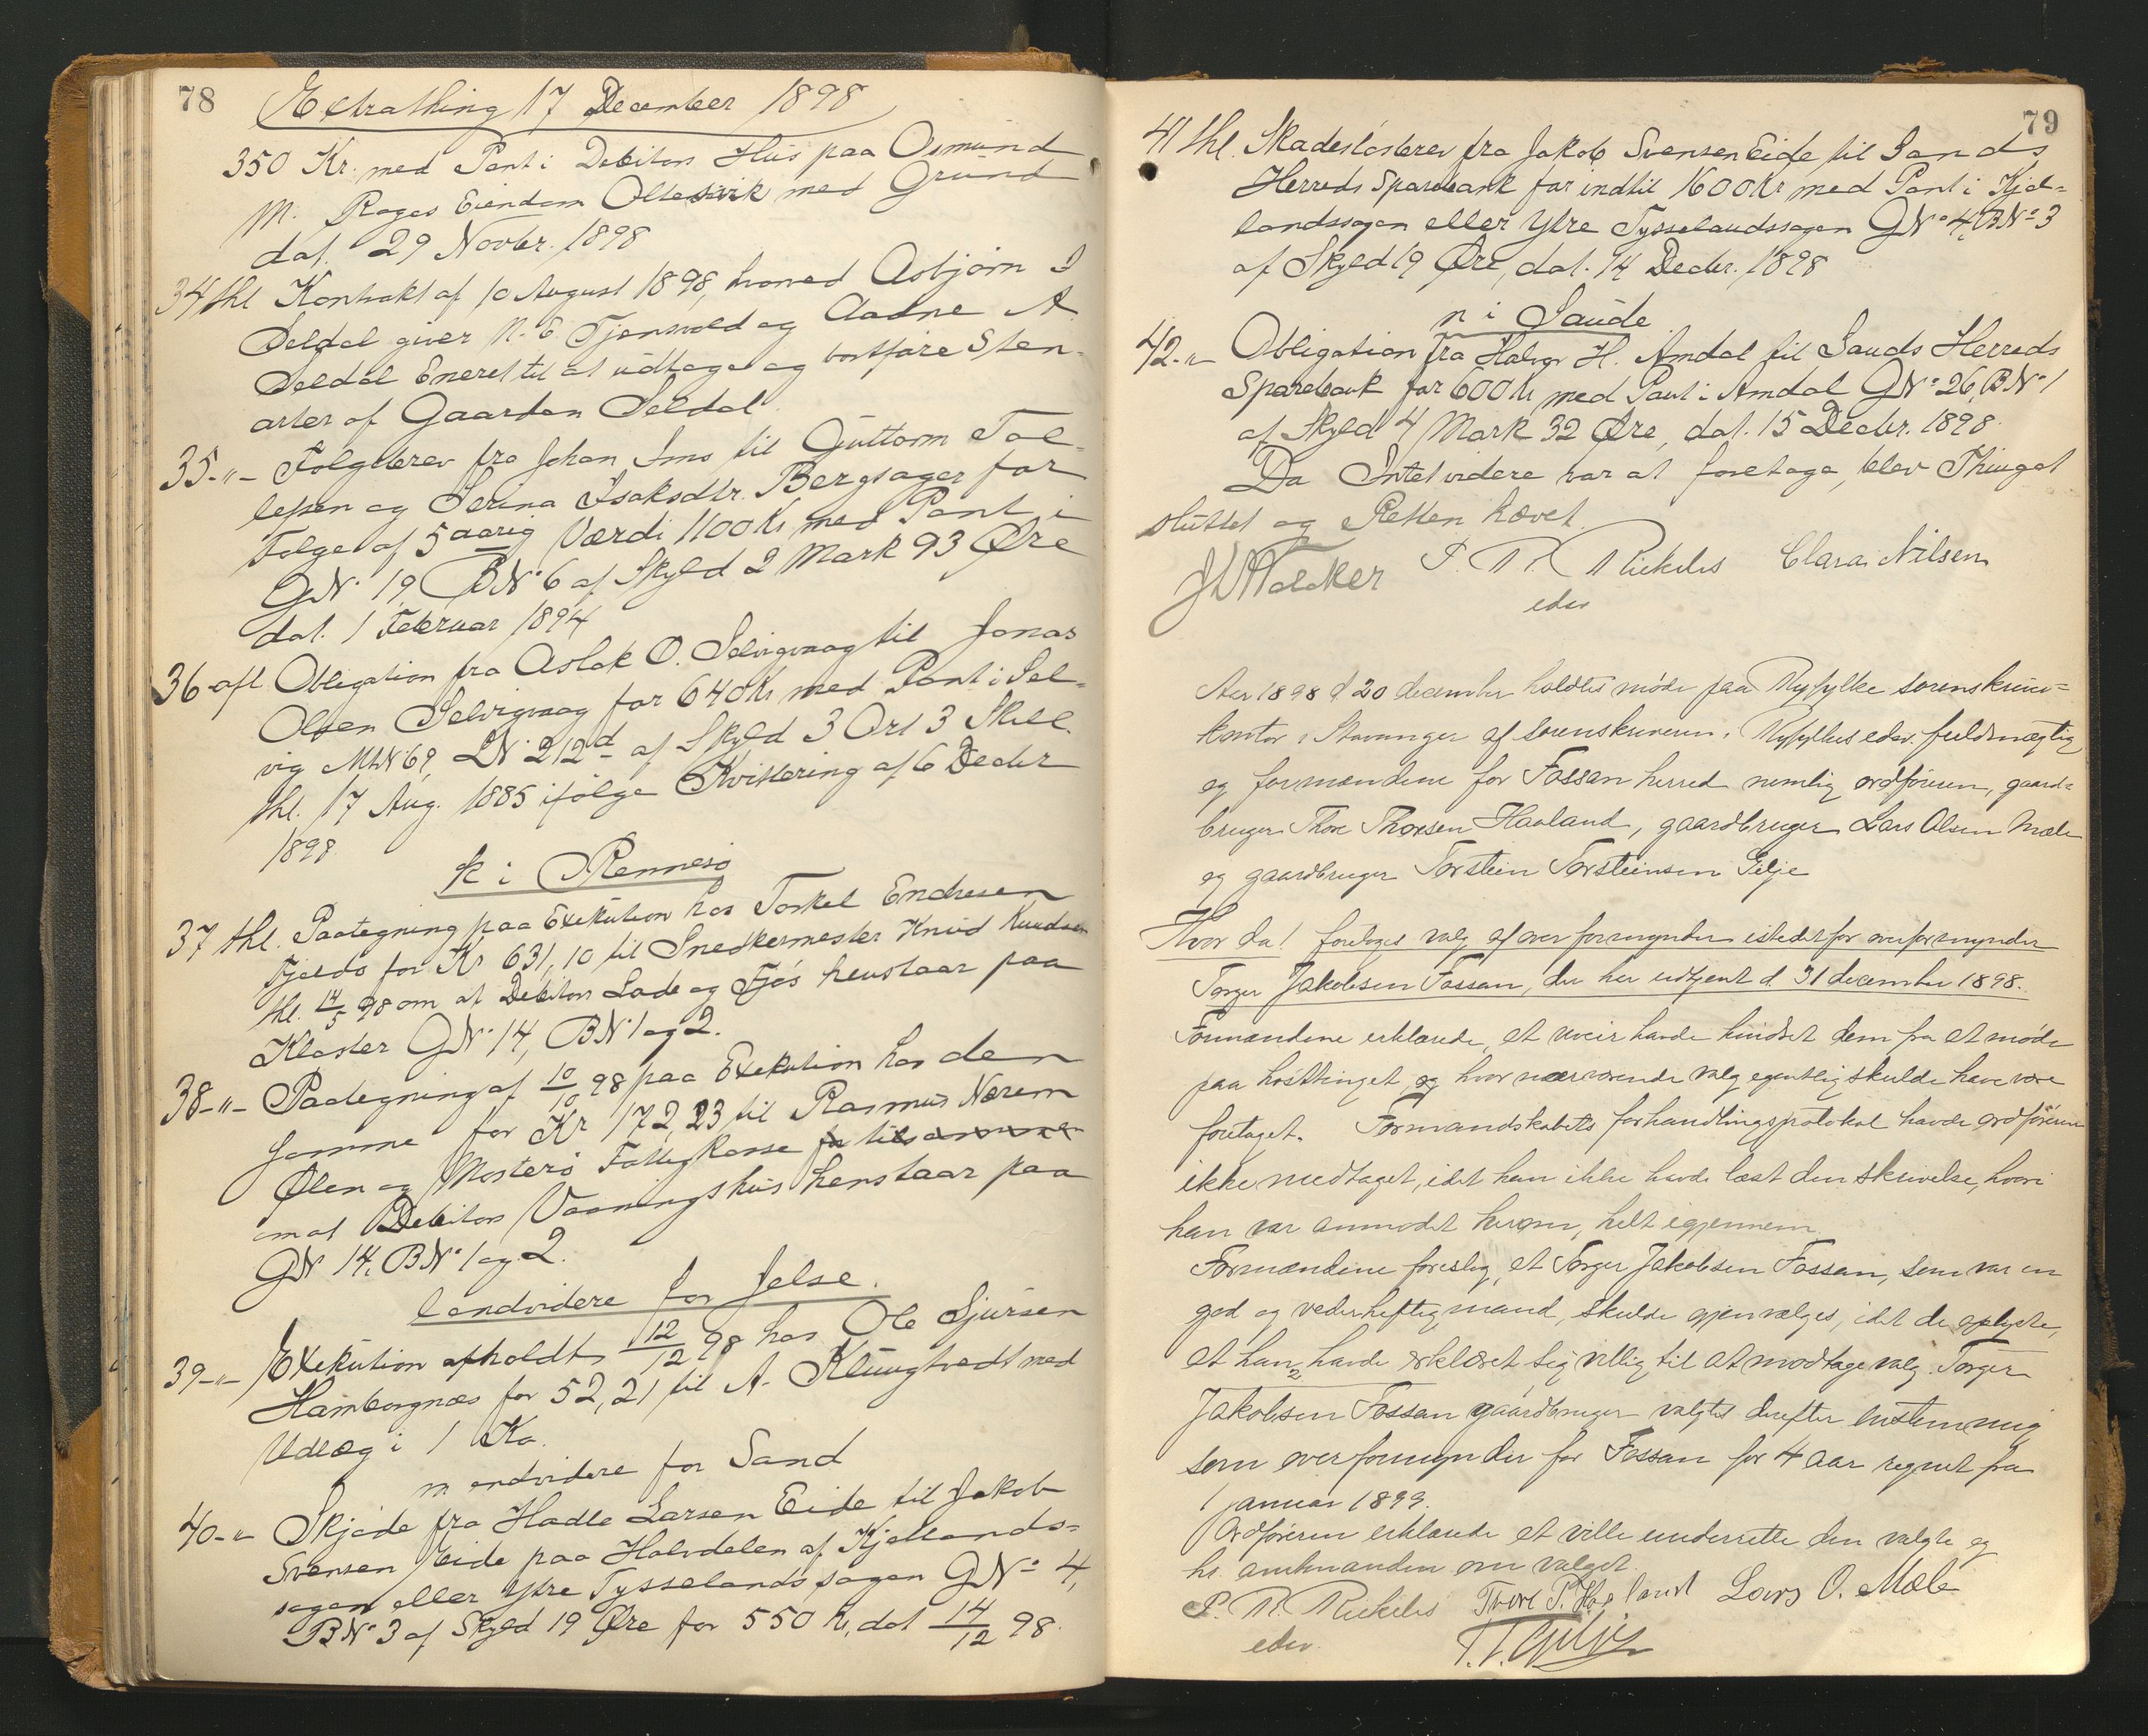 78
Extrathing 17 December 1898
350 Kr. med Pant i Debitors Hus paa Osmund
M. Rages Eiendom Oltesvik med Grund
dat. 29 Novbr. 1898
34 thl Kontrakt af 10 August 1898, hvorved Asbjørn I
Seldal giver N. E. Tjensvold og Aadne A
Seldal Eneret til at udtage og bortføre Sten-
arter af Gaarden Seldal
35-"- Følgebrev fra Johan Ims til Guttorm Tol-
lefsen og Serina Isaksdtr. Bergsager for
Følge af 5 aarig Værdi 1100 Kr med Pant i
GN° 19 BN° 6 af Skyld 2 Mark 93 Øre
dat. 1 Februar 1894
36 afl Obligation fra Aslak O. Selvigvaag til Jonas
Olsen Selvigvaag for 640 Kr med Pant i Sel-
vig MtN° 69, LN° 212d af Skyld 3 Ort 3 Skill.
thl. 17 Aug. 1885 ifølge Kvittering af 6 Decbr
1898
k i Rennesø
37 thl. Paategning paa Exekution hos Torkel Endresen
Fjelds for Kr 631,10 til Snedkermester Knud Knudsen
thl. 14/5 98 om at Debitors Lade og Fjøs henstaar paa
Kloster GN° 14, BN° 1 og 2.
38-"- Paategning af 10/10 98 paa Exekution hos den
samme for Kr 172,23 til Rasmus Nærem
Ølen og Mosterø Fattigkasse
om at Debitors Vaaningshus henstaar paa
GN 14, BN° 1 og 2.
l endvidere for Jelse.
39-"- Exekution afholdt 12/12 98 hos Ole Sjursen
Hamborgnæs for 52,21 til A. Klungtvedt med
Udlæg i 1 Ko.
m endvidere for Sand
40-"- Skjøde fra Hadle Larsen Eide til Jakob
Svensen Eide paa Halvdelen af Kjøllands-
sagen eller Ytre Tysselandssagen GN° 4,
BN° 3 af Skyld 19 Øre for 550 Kr, dat 14/12 98.
79
41 thl. Skadesløsbrev fra Jakob Svensen Eide til Sands
Herreds Sparebank for indtil 1600 Kr med Pant i Kjøl-
landssagen eller Ytre Tysselandssagen GN° 4, BN° 3
af Skyld 19 Øre, dat. 14 Decbr. 1898
n i Saude
42-"- Obligation fra Halvor H. Amdal til Sauds Herreds
Sparebank for 600 Kr med Pant i Amdal GN° 26, BN° 1
af Skyld 4 Mark 32 Øre, dat. 15 Decbr. 1898.
Da Intet videre var at foretage, blev Thinget
sluttet og Retten hævet.
P. M. Mikelis Clara Nilsen
edsv
Aar 1898 d 20 december holdtes møde paa Ryfylke sorenskriver-
kontor i Stavanger af sorenskriveren i Ryfylkes edsv. fuldmægtig
og formændene for Fossan herred nemlig ordføreren, gaard-
bruger Thore Thorsen Haaland, gaardbruger Lars Olsen Mæle
og gaardbruger Torstein Torsteinsen Gilje
Hvor da! foretoges valg af overformynder istedetfor overformynder
Torger Jakobsen Fossan, der har udtjent d. 31 december 1898.
Formændene erklærede, at uveir havde hindret dem fra at møde
paa høsttinget, og hvor nærværende valg egentlig skulde have være
foretaget. Formandskabets forhandlingsprotokol havde ordføreren
ikke medtaget, idet han ikke havde læst den skrivelse, hvori
han var anmodet herom, helt igjennem
Formændene foreslog, at Torger Jakobsen Fossan, som var en
god og vederheftig mand, skulde gjenvælges, idet de oplyste,
at han havde erklæret sig villig til at modtage valg. Torger
Jakobsen Fossan gaardbruger valgtes derefter enstemmig
som overformynder for Fossan for 4 aar regnet fra
1 januar 1899.
Ordføreren erklærede at ville underrette den valgte og
hr. amtmanden om valget.
P. M. Mikelis Thore T. Haaland Lars O. Mæle
edsv. T. T. Gilje